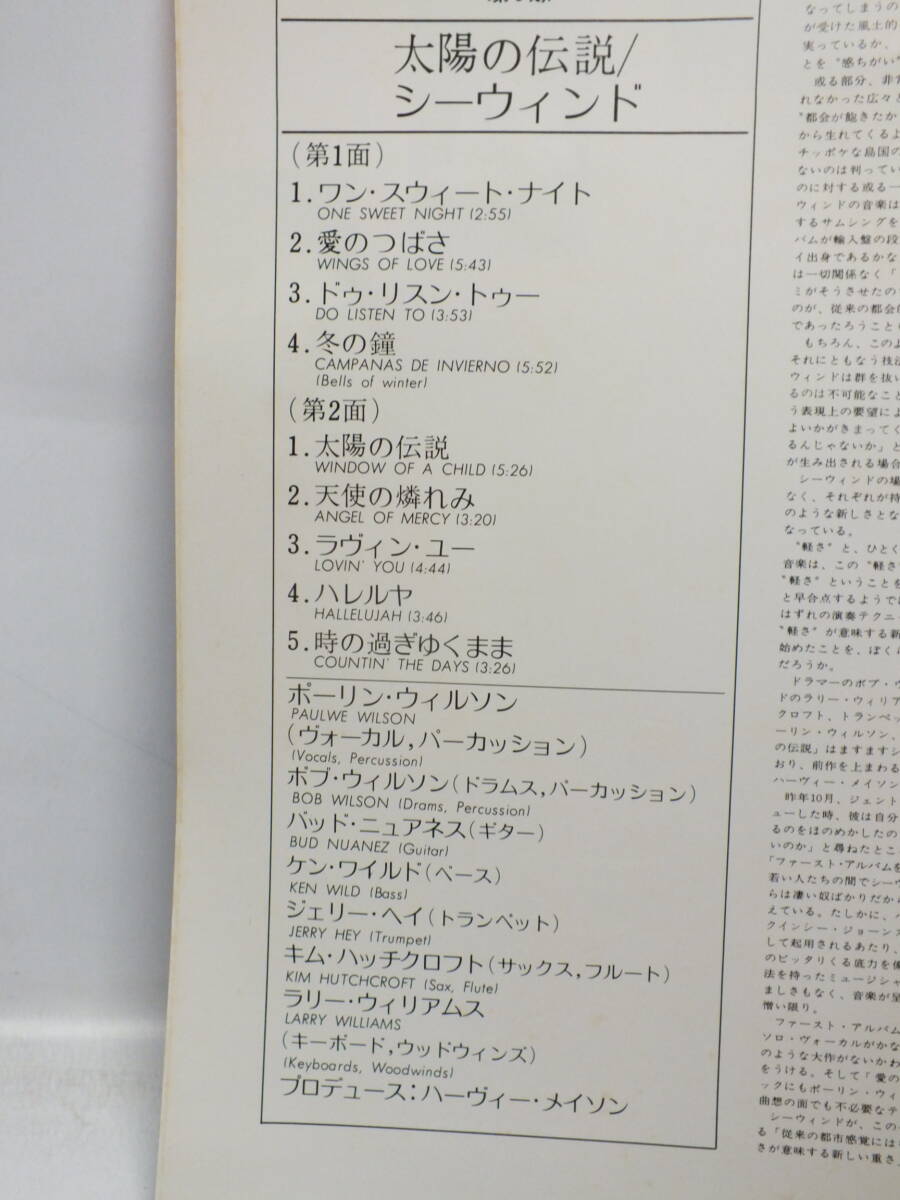 太陽の伝説/
シーウィンド
(第1面)
1.ワン・スウィート・ナイト
ONE SWEET NIGHT (2:55)
2.愛のつばさ
WINGS OF LOVE (5:43)
3.ドゥ・リスン・トゥー
DO LISTEN TO (3:53)
4.冬の鐘
CAMPANAS DE INVIERNO (5:52)
(Bells of winter)
(第2面)
1.太陽の伝説
WINDOW OF A CHILD (5:26)
2.天使の燐れみ
ANGEL OF MERCY (3:20)
3.ラヴィン・ユー
LOVIN' YOU (4:44)
4.ハレルヤ
HALLELUJAH (3:46)
5.時の過ぎゆくまま
COUNTIN' THE DAYS (3:26)
ポーリン・ウィルソン
PAULWE WILSON
(ヴォーカル,パーカッション)
(Vocals, Percussion)
ボブ・ウィルソン(ドラムス,パーカッション)
BOB WILSON (Drams, Percussion)
バッド・ニュアネス(ギター)
BUD NUANEZ (Guitar)
ケン・ワイルド(ベース)
KEN WILD (Bass)
ジェリー・ヘイ(トランペット)
JERRY HEY (Trumpet)
キム・ハッチクロフト(サックス,フルート)
KIM HUTCHCROFT (Sax, Flute)
ラリー・ウィリアムス
LARRY WILLIAMS
(キーボード,ウッドウィンズ)
(Keyboards, Woodwinds)
プロデュース:ハーヴィー・メイソン
なってしまうの
が受けた風土的
実っているか、
とを〝感ちがい〞
或る部分、非常
れなかった広々と
〝都会が飽きたか
から生れてくるよ
チッポケな島国の
ないのは判ってい
のに対する或る一
ウィンドの音楽は
するサムシングを
バムが輸入盤の段
イ出身であるかな
は一切関係なく「
ミがそうさせたの
のが、従来の都会的
であったろうこと
もちろん、このよ
それにともなう技法
ウィンドは群を抜い
るのは不可能なこと
う表現上の要望によ
よいかがきまってく
るんじゃないか」と
が生み出される場合
シーウィンドの場
なく、それぞれが持
のような新しさとな
なっている。
〝軽さ〞と、ひとく
音楽は、この〝軽さ
〝軽さ〞ということを
と早合点するようで
はずれの演奏テクニ
〝軽さ〞が意味する新
始めたことを、ぼく
だろうか。
ドラマーのボブ・ウ
ドのラリー・ウィリア
クロフト、トランペッ
ーリン・ウィルソン、
の伝説」はますますシ
おり、前作を上まわる
ハーヴィー・メイソン
昨年10月、ジェント
ューした時、彼は自分
るのをほのめかしたの
いのか」と尋ねたとこ
「ファースト・アルバムを
若い人たちの間でシー
らは凄い奴ばかりだから
えている。たしかに、
クインシー・ジョーンズ
して起用されるあたり、
のピッタリくる底力を
法を持ったミュージシャ
ましさもなく、音楽が
憎い限り。
ファースト・アルバム
ソロ・ヴォーカルがかな
のような大作がないかわ
をうける。そして「愛の
ックにもポーリン・ウィ
曲想の面でも不必要なテ
シーウィンドが、この
る「従来の都市感覚には
さが意味する新しい重さ